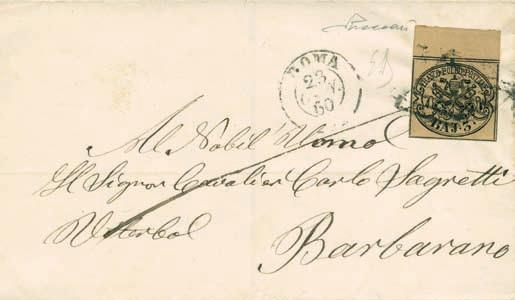 ROMA
23
60
FRANCO BOLLO POSTALE
BAJ 3
Al Nobil Uomo
Il Signor Cavalier Carlo Sagretti
Viterbo
Barbarano